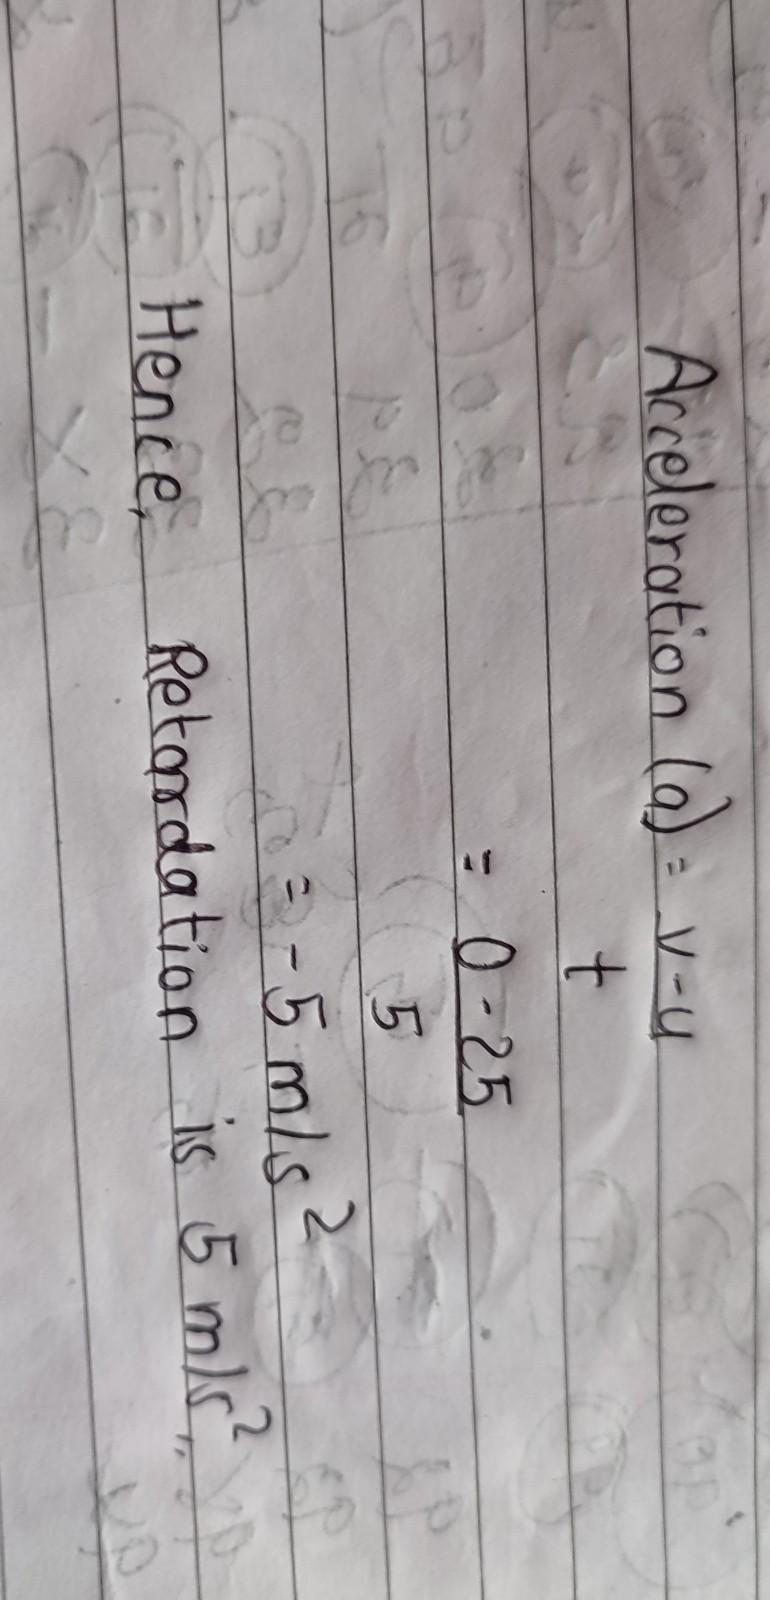 Acceleration (a) = v-u
t
= 0-25
5
= -5 m/s²
Hence, Retardation is 5 m/s²,,